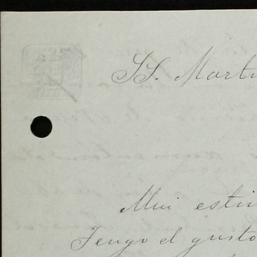 SS. Martí
Mui esti
Tengo el gusto